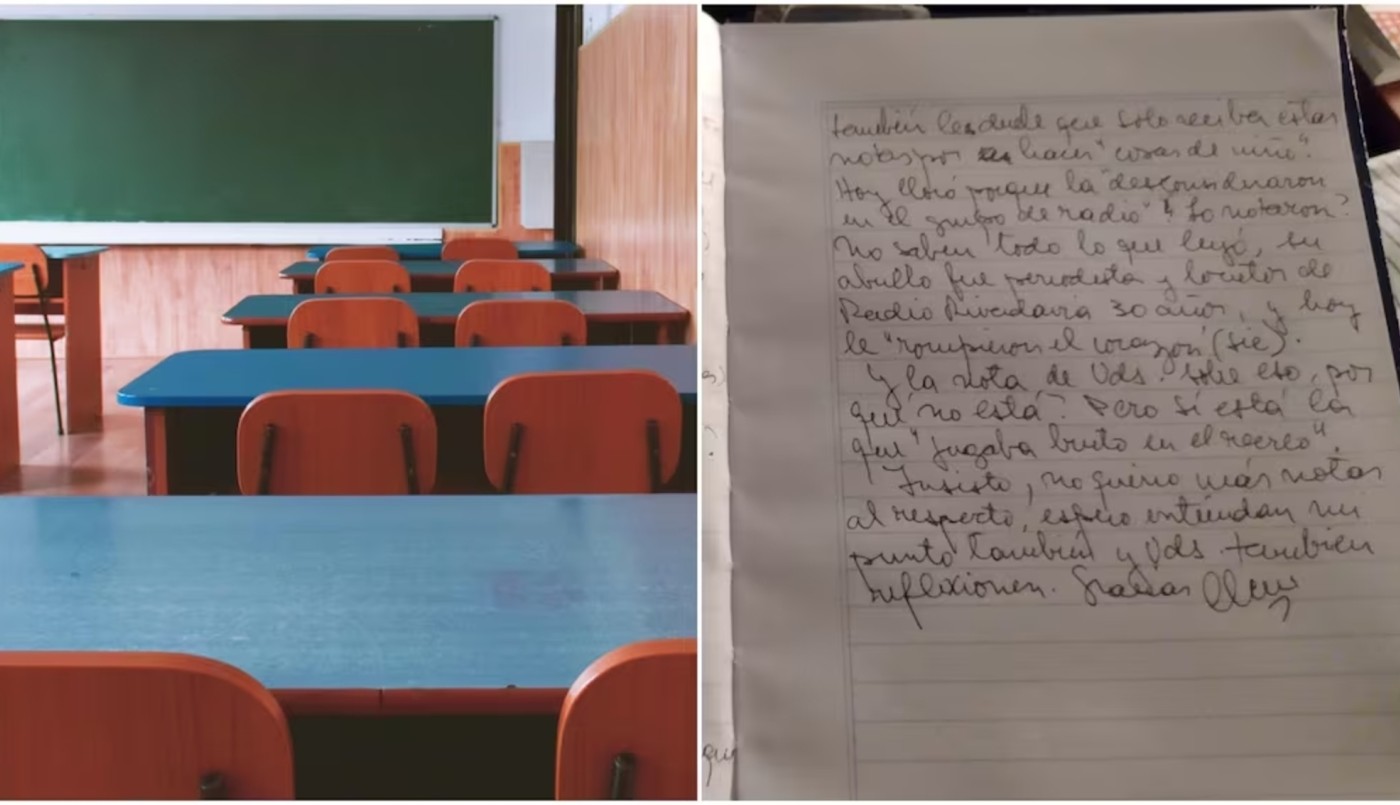 también les duele que solo reciba estas
notas por hacer "cosas de niño".
Hoy lloró porque la "desconsideraron
en el grupo de radio" ¿Lo notaron?
No saben todo lo que leyó, su
abuelo fue periodista y locutor de
Radio Rivadavia 30 años, y hoy
le "rompieron el corazón" (sic).
Y la nota de Uds. sobre eso, por
qué no está? Pero sí está la
que "jugaba bruto en el recreo".
Insisto, no quiero más notas
al respecto, espero entiendan mi
punto también y Uds. también
reflexionen. Gracias